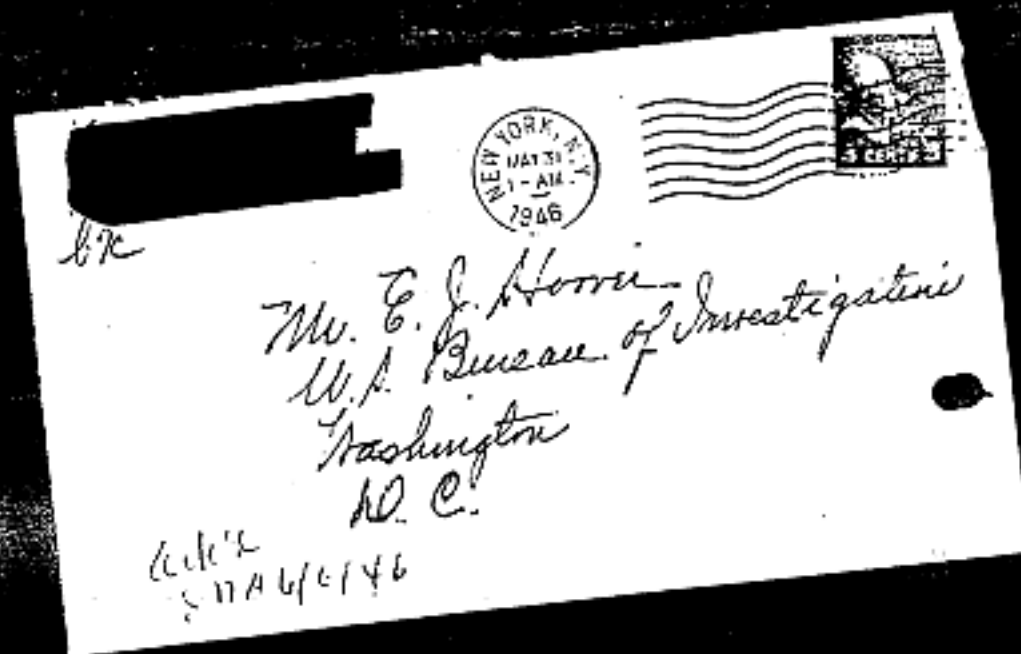 NEW YORK, N.Y.
MAY 31
1 - AM
1946
3 CENTS 3
Mr. E. J. Hoover
U.S. Bureau of Investigation
Washington
D. C.
6/6/46